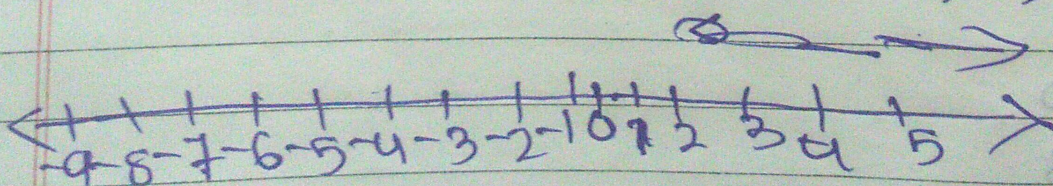 -9-8-7-6-5-4-3-2-1 0 1 2 3 4 5